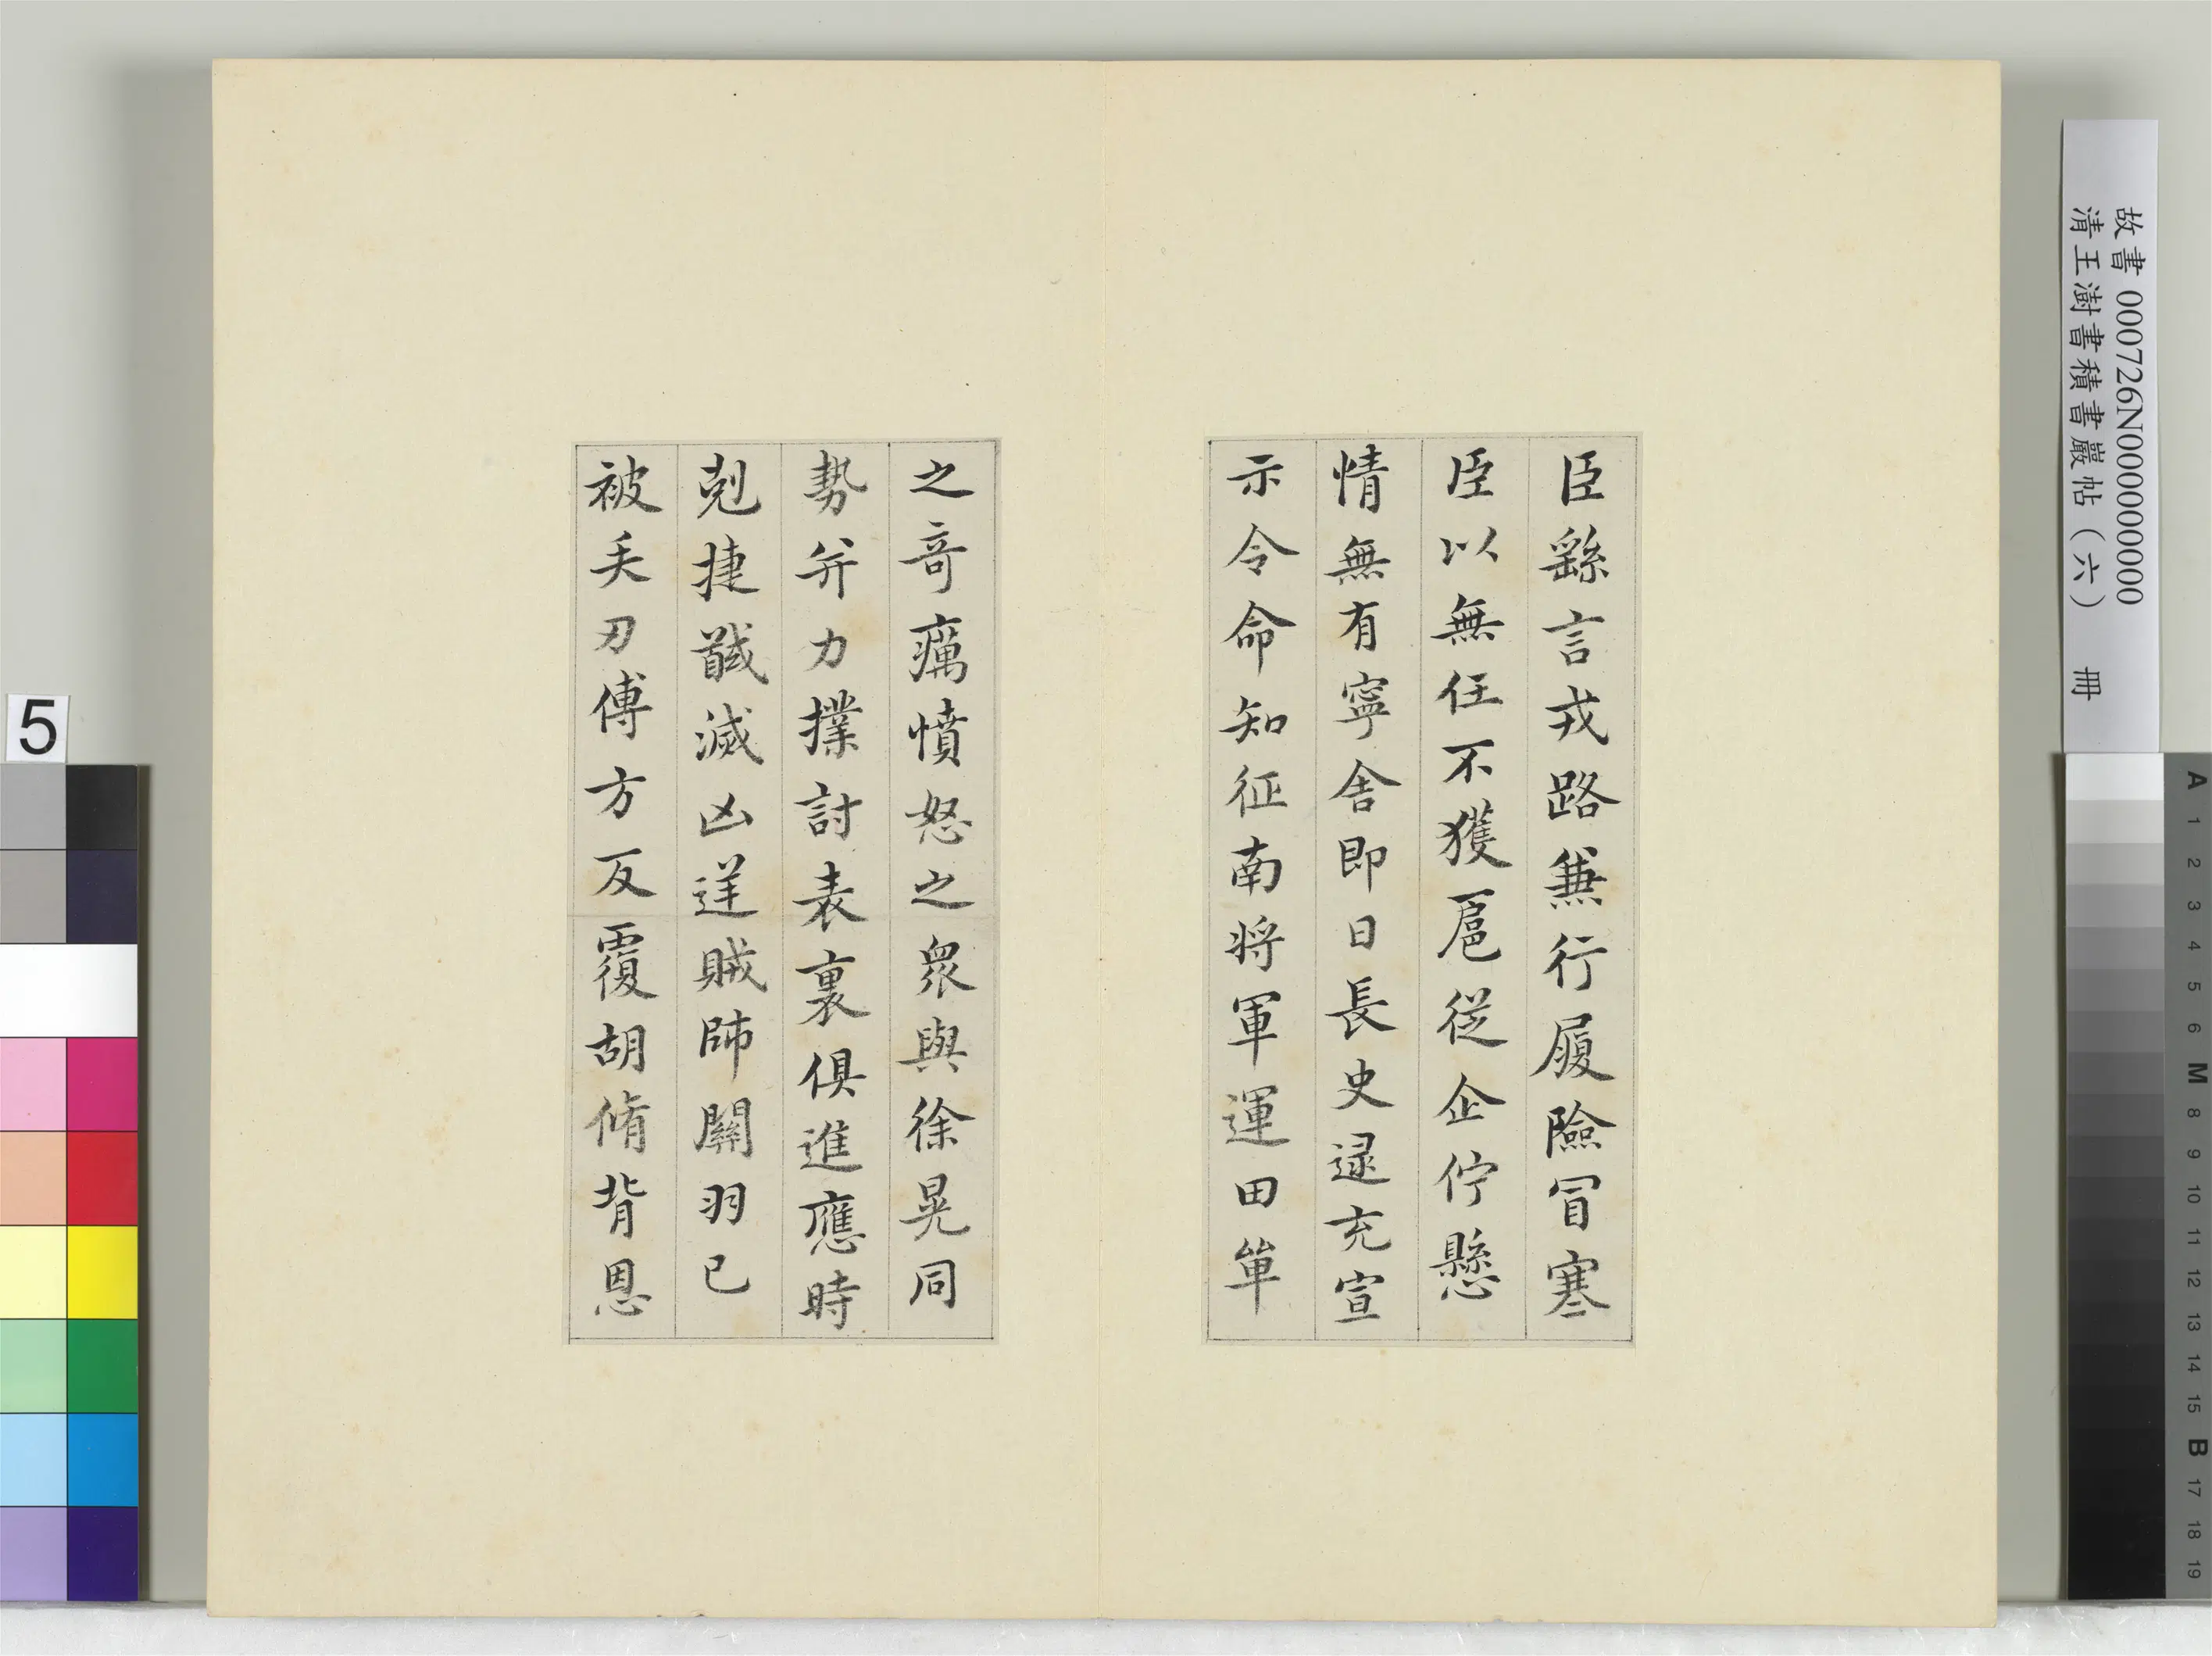 臣繇言戎路兼行履險冒寒
臣以無任不獲扈從企佇懸
情無有寧舍即日長史逯充宣
示令命知征南將軍運田單
之奇厲憤怒之眾與徐晃同
勢并力撲討表裏俱進應時
剋捷馘滅凶逆賊帥關羽已
被矢刃傅方反覆胡脩背恩
故書 000726N000000000
清王澍書積書巖帖（六） 冊
5
A 1 2 3 4 5 6 M 8 9 10 11 12 13 14 15 B 17 18 19